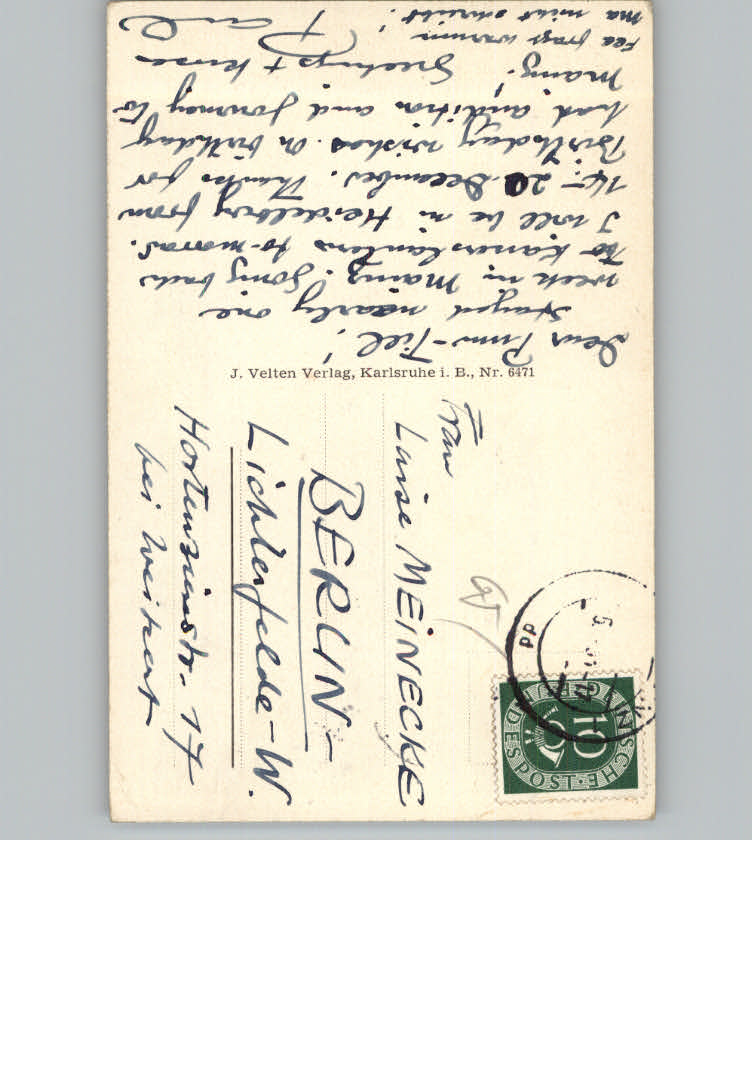 Dear Pims-Tiel!
Stayed nearly one
week in Mainz. Going back
to Kaiserslautern to-morrow.
I will be in Heidelberg from
14.- 20. December. Thanks for
Birthday wishes. On birthday
had audition and journey to
Mainz. Greetings + kisses
Paul
Fee fragt warum
ma nicht schreibt!
J. Velten Verlag, Karlsruhe i. B., Nr. 6471
Frau
Luise MEINECKE
BERLIN-
Lichterfelde-W.
Hortensienstr. 17
bei Weikert
DEUTSCHE
BUNDESPOST
10
MAINZ
dd